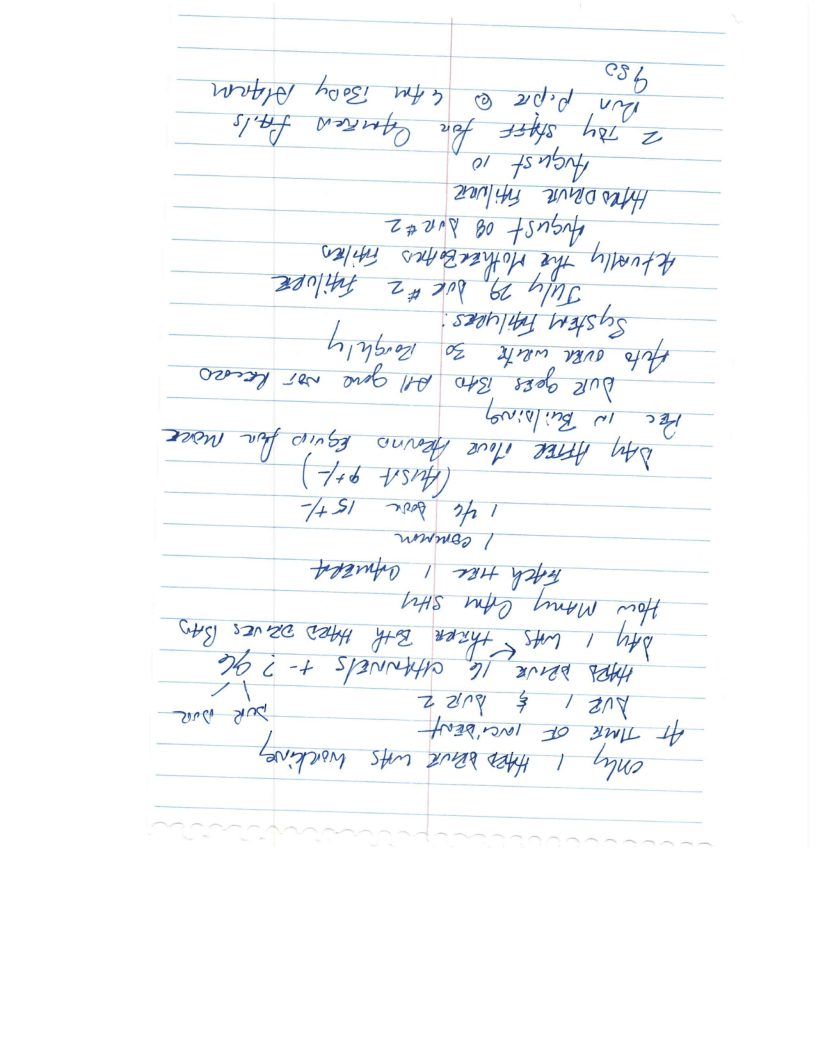 only 1 HARD DRIVE WAS WORKING
AT TIME OF INCIDENT
DVR 1 & DVR 2 DVR DVR
HARD DRIVE 16 CHANNELS +-? 96
DAY 1 WAS THERE Both HARD DRIVES BAD
How MANY CAM SHU
EACH TIER 1 CAMERA
1 COMMON
1 DOOR 15+/-
(AUSA 9+/-)
DAY AFTER TOUR AROUND EQUIP for MORE
REC IN Building
DVR goes BAD All gone NOT RECORD
Auto over write 30 Roughly
System FAILURES:
July 29 DVR #2 FAILURE
Actually the MotherBoard FAILED
August 08 DVR #2
HARD DRIVE FAILURE
August 10
2 staff for Cameras
Run pipe @ 4 AM Body Alarm